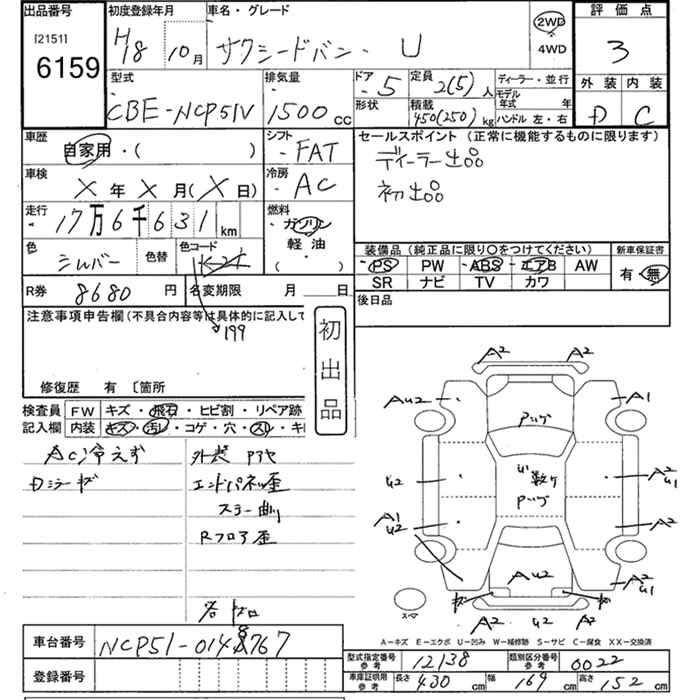 出品番号 初度登録年月 車名・グレード 2WD 評価点
[2151] 6159 H18 10月 サクシードバン・ U 4WD 3
型式 排気量 ドア 5 定員 2(5)人 ディーラー・並行 外装 内装
CBE-NCP51V 1500 CC 形状 積載 450(250)kg モデル年式 年 D C
ハンドル 左・右
車歴 シフト セールスポイント (正常に機能するものに限ります)
自家用・( ) FAT ディーラー出品
車検 冷房 初出品
X年X月(X日) AC
走行 燃料
17万6千631km ガソリン
色 色替 色コード 軽油 装備品(純正品に限り○をつけてください) 新車保証書
シルバー ( ) PS PW ABS エアB AW 有・無
R券 8680円 名変期限 月 日 SR ナビ TV カワ
注意事項申告欄(不具合内容等は具体的に記入して 後日品
199
初出品
修復歴 有 〔箇所
検査員 FW キズ・飛石・ヒビ割・リペア跡
記入欄 内装 キズ・汚レ・コゲ・穴・スレ・キ
AC冷えず 外装
エンドパネル歪
ステー曲り
Rフロア歪
A2 A2
AU2 A1
U2 A2 U1
A1 U2 A2
AU2 A2 U1
スペア
A2 U2 A2
A-キズ E-エクボ U-凹み W-補修跡 S-サビ C-腐食 XX-交換済
車台番号 NCP51-0148767
型式指定番号 参考 12138 類別区分番号 参考 0022
登録番号 車庫証明用 参考 長さ 430 cm 幅 169 cm 高さ 152 cm